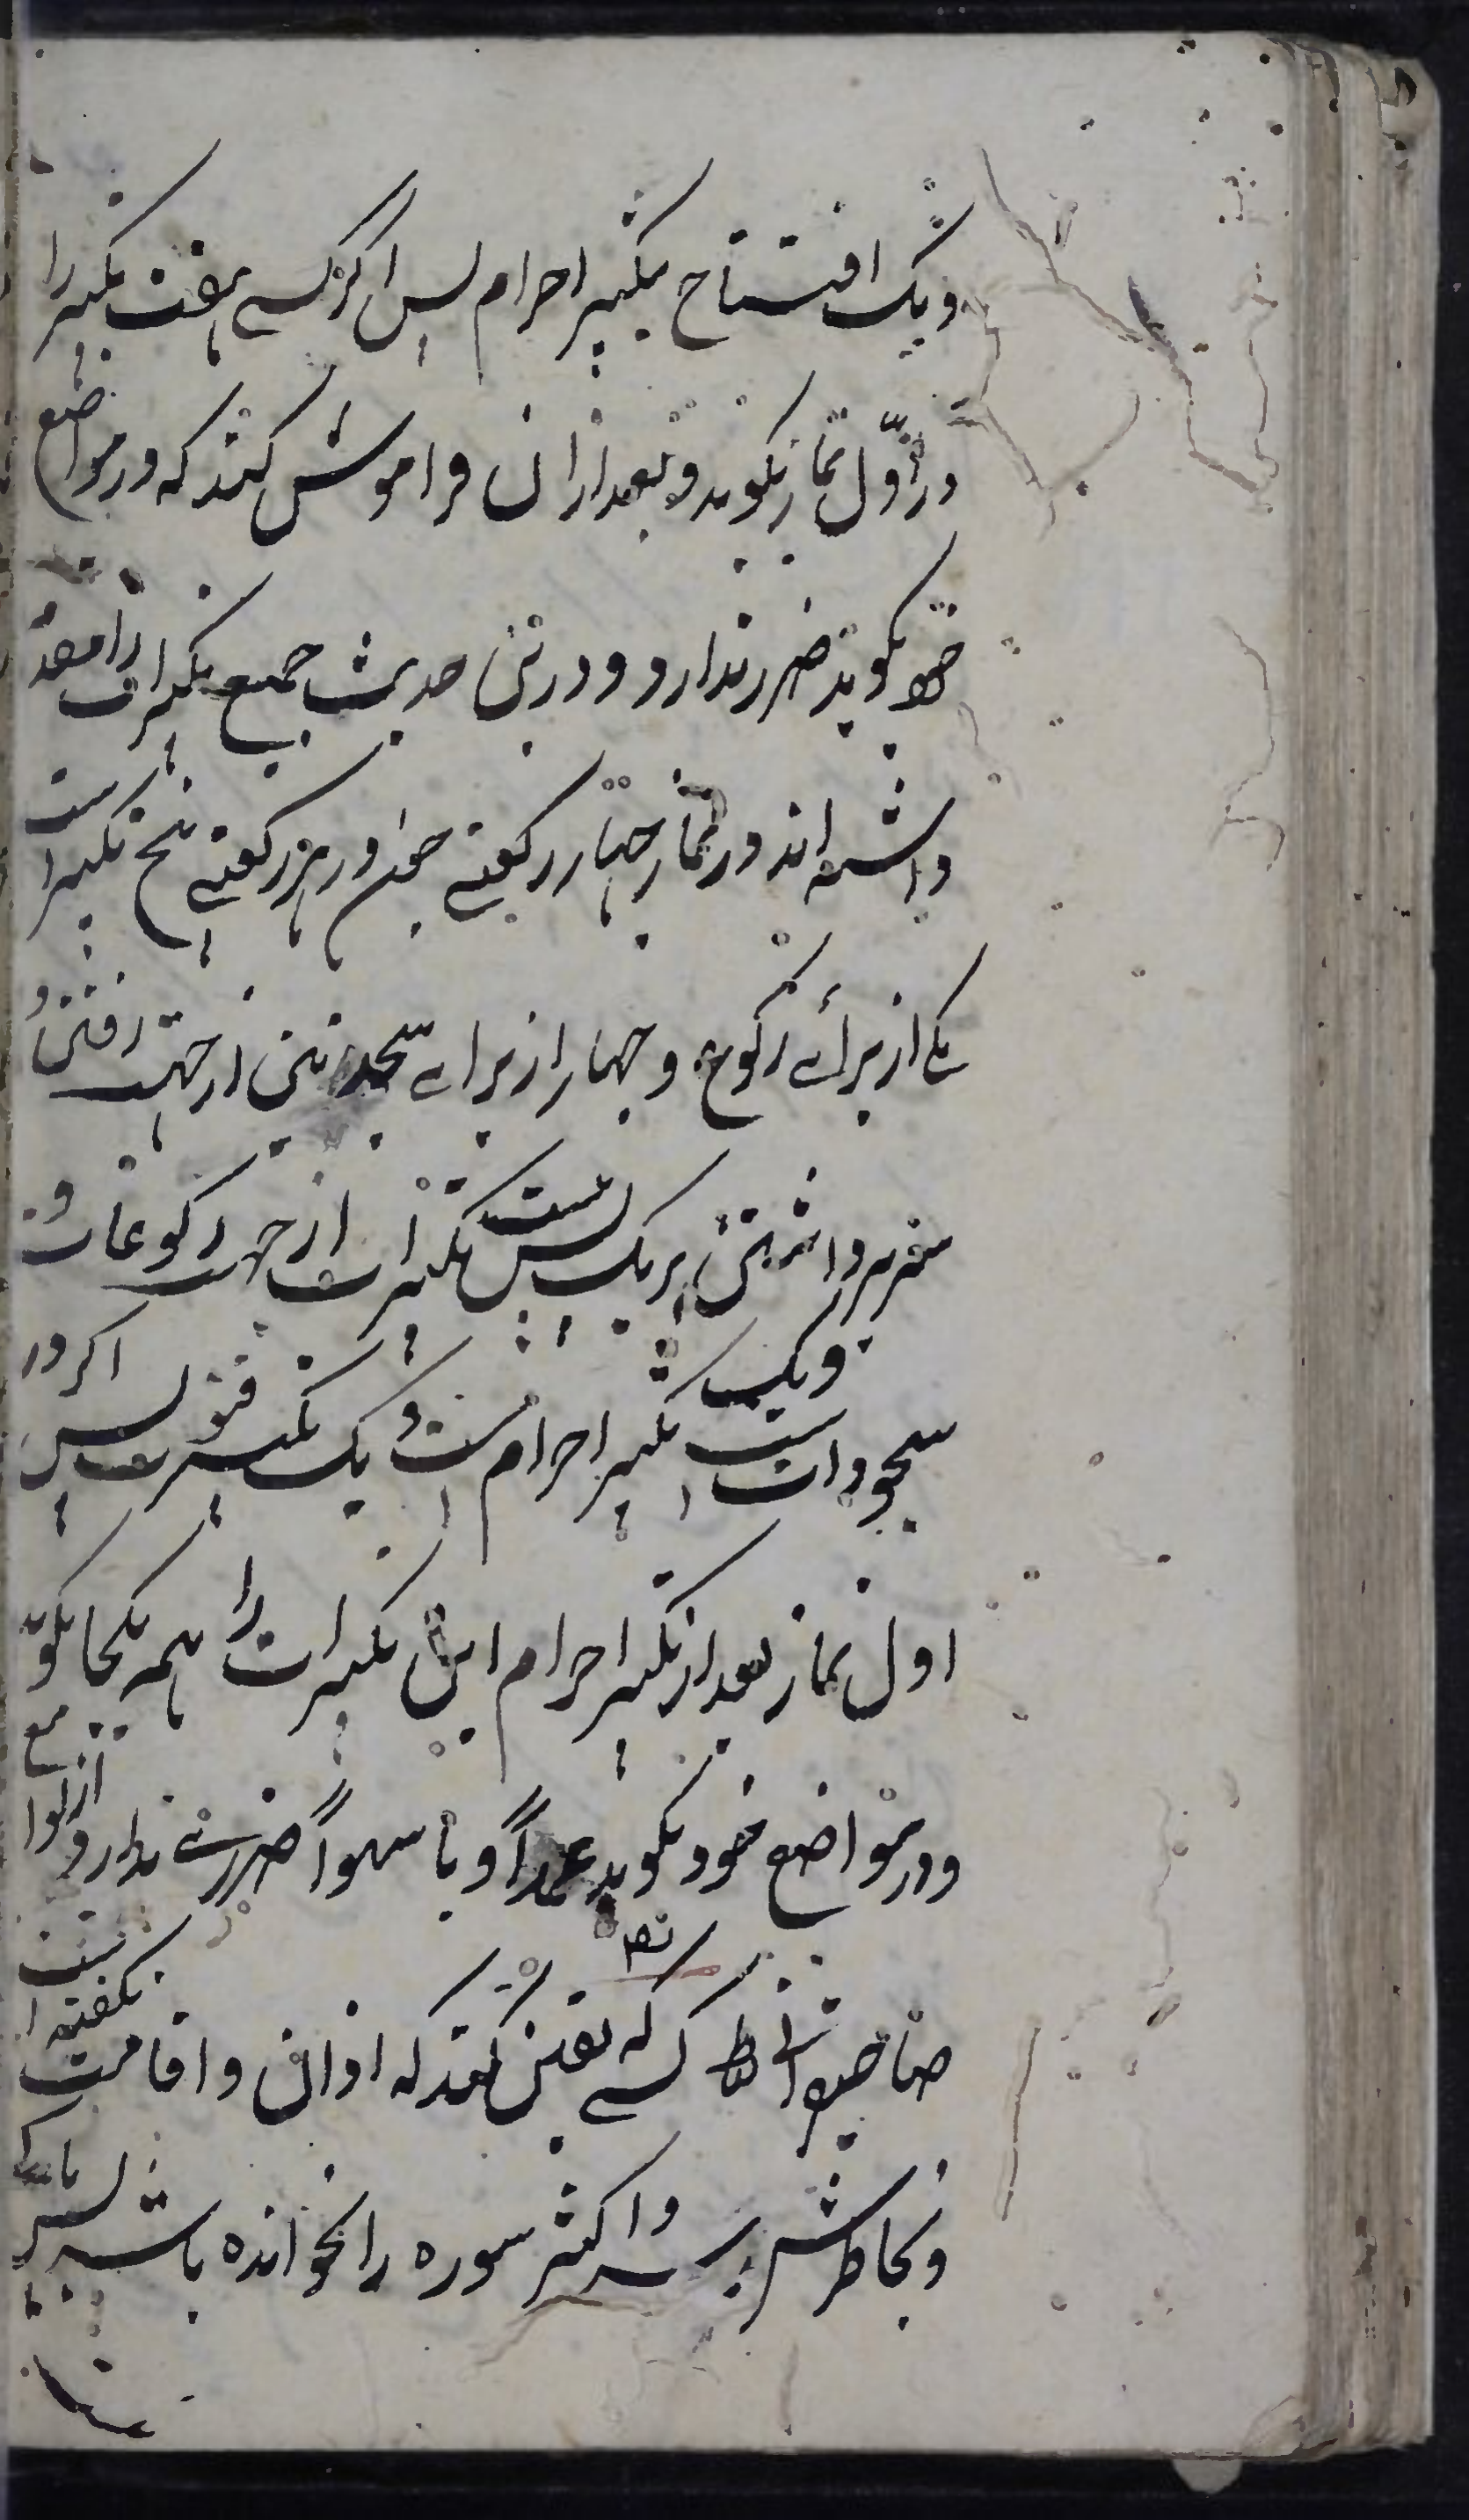 و یک افتتاح تکبیر احرام پس اگر کسے هفت تکبیر را
در اوّل نماز بگوید و بعد ازان فراموش کند که در مواضع
خود بگوید ضرر ندارد و درین حدیث جمیع تکبیرات را مقدم
داشته اند در نماز چهار رکعتے چون در هر رکعتے پنج تکبیر است
یکے از برائے رکوع و چهار از برائے سجدتین از جهت رفتن و
سر برداشتن هر یک پس بیست تکبیرات از جهت رکوعات و
سجودات است و یک تکبیر احرام است و یک تکبیر قنوت پس اگر در
اول نماز بعد از تکبیر احرام این تکبیرات را همه یکجا بگوید
و در مواضع خود نگوید عمداً و یا سهواً ضررے ندارد از توابع
نصر
صاحبقرانی کسے که یقین کند که اذان و اقامت نگفته است
و بخاطرش رسد و اکثر سوره را نخوانده باشد پس باید که